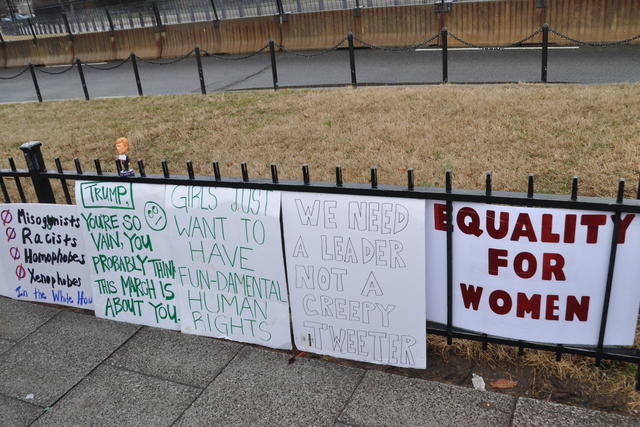 Ø Misogynists
Ø Racists
Ø Homophobes
Ø Xenophobes
In the White Hou
TRUMP!
YOU'RE SO
VAIN, YOU
PROBABLY THINK
THIS MARCH IS
ABOUT YOU.
GIRLS JUST
WANT TO
HAVE
FUN-DAMENTAL
HUMAN
RIGHTS
WE NEED
A LEADER
NOT A
CREEPY
TWEETER
EQUALITY
FOR
WOMEN